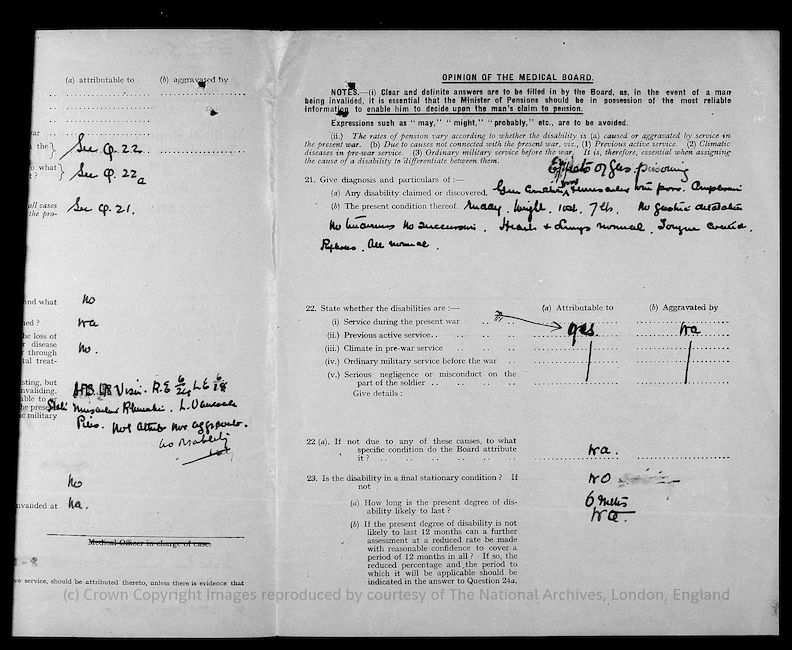 (a) attributable to (b) aggravated by
war
n the } See Q. 22.
o what } See Q. 22a
t ?
all cases See Q. 21.
the pro-
nd what no
ned ? na
he loss of
r disease no.
r through
tal treat-
sting, but
nvaliding. Vision. R.E 6/24 L.E 6/18
able to
he present
e military
Piles. not attrib nor aggravate.
no
nvalided at na.
Medical Officer in charge of case.
ve service, should be attributed thereto, unless there is evidence that
OPINION OF THE MEDICAL BOARD.
NOTES.—(i) Clear and definite answers are to be filled in by the Board, as, in the event of a man
being invalided, it is essential that the Minister of Pensions should be in possession of the most reliable
information to enable him to decide upon the man's claim to pension.
Expressions such as "may," "might," "probably," etc., are to be avoided.
(ii.) The rates of pension vary according to whether the disability is (a) caused or aggravated by service in
the present war. (b) Due to causes not connected with the present war, viz., (1) Previous active service. (2) Climatic
diseases in pre-war service. (3) Ordinary military service before the war. It is, therefore, essential when assigning
the cause of a disability to differentiate between them.
Effects of gas poisoning
21. Give diagnosis and particulars of :—
(a) Any disability claimed or discovered.
(b) The present condition thereof. weight. 10st. 7 lbs. No
No No Heart & Lungs normal. Tongue coated.
Reflexes. All normal.
22. State whether the disabilities are :— (a) Attributable to (b) Aggravated by
(i) Service during the present war
(ii.) Previous active service gas na
(iii.) Climate in pre-war service
(iv.) Ordinary military service before the war
(v.) Serious negligence or misconduct on the
part of the soldier
Give details :
22 (a). If not due to any of these causes, to what
specific condition do the Board attribute na.
it ?
23. Is the disability in a final stationary condition ? If NO
not
(a) How long is the present degree of dis- 6 mths
ability likely to last ? na.
(b) If the present degree of disability is not
likely to last 12 months can a further
assessment at a reduced rate be made
with reasonable confidence to cover a
period of 12 months in all ? If so, the
reduced percentage and the period to
which it will be applicable should be
indicated in the answer to Question 24a.
(c) Crown Copyright Images reproduced by courtesy of The National Archives, London, England